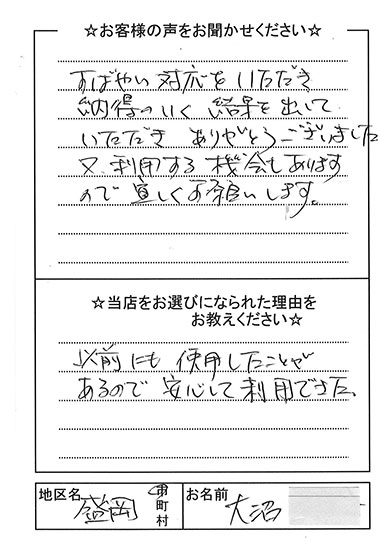 ☆お客様の声をお聞かせください☆
すばやい対応をいただき
納得のいく 結果を出して
いただき ありがとうございました
又、利用する機会もあります
ので宜しくお願いします。
☆当店をお選びになられた理由を
お教えください☆
以前にも使用したことが
あるので安心して利用できた。
地区名 盛岡 市町村 お名前 大沼